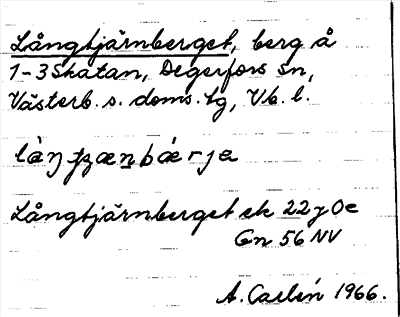 Långtjärnberget, berg å
1-3 Skatan, Degerfors sn,
Västerb. s. doms. tg, Vb. l.
Långtjärnberget ek 22 J 0e
Gn 56 NV
A. Carlén 1966.